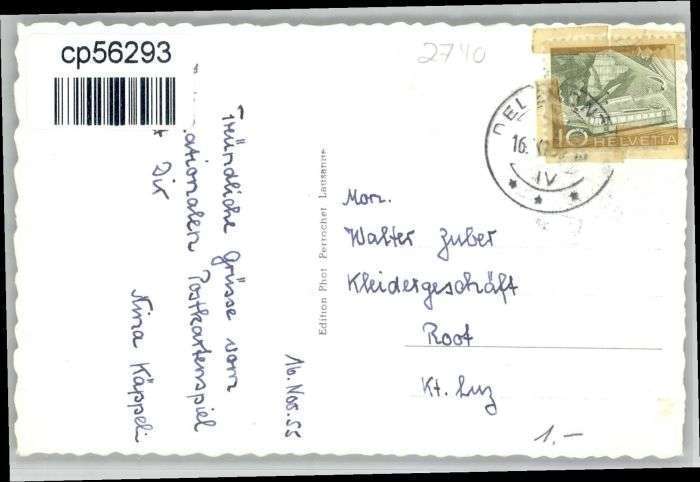 cp56293
2740
10 HELVETIA
16.
IV
16. Nov. 55
Freundliche Grüsse vom
ationalen Postkartenspiel
Dir
Nina Käppeli
Edition Phot Perrochet Lausanne
Mon.
Walter Zuber
Kleidergeschäft
Root
Kt. Luz
1.-